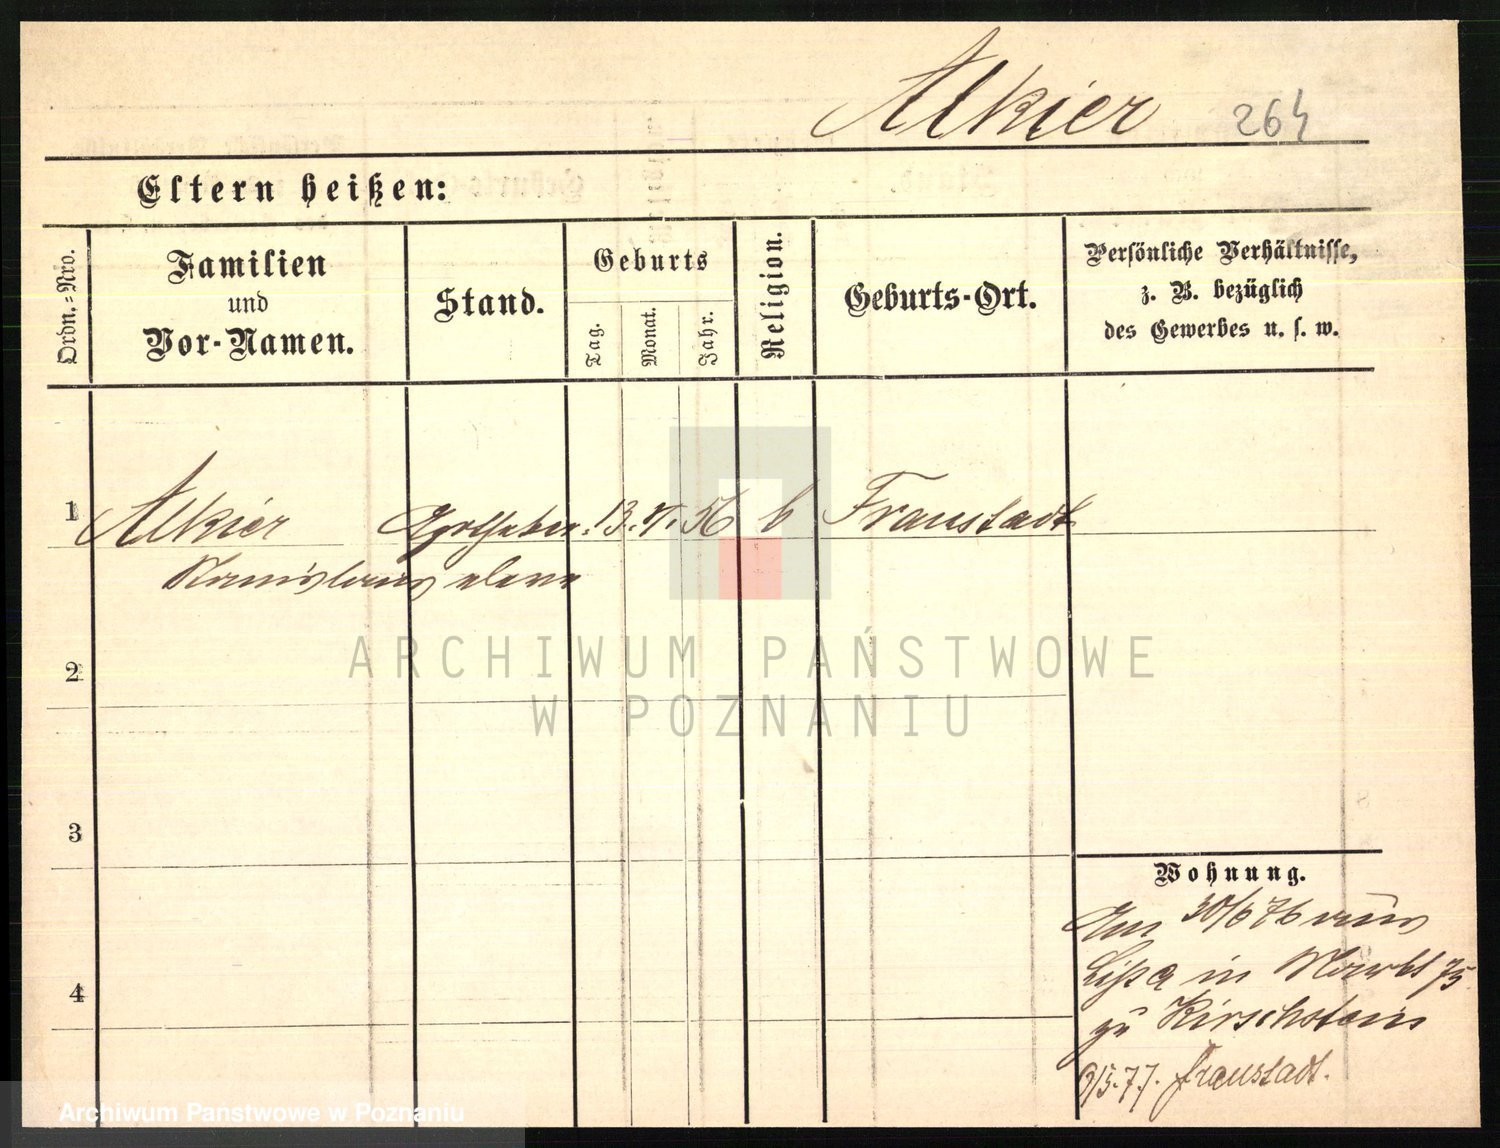 Alkier 264
Eltern heißen:
Ordn.=Nro.
Familien
und
Vor-Namen.
Stand.
Geburts
Tag.
Monat.
Jahr.
Religion.
Geburts-Ort.
Persönliche Verhältnisse,
z. B. bezüglich
des Gewerbes u. s. w.
1 Alkier Apotheker 13. 56 Fraustadt
Stanislaus eleve
2
ARCHIWUM PAŃSTWOWE
W POZNANIU
3
Wohnung.
Am 30/6 76 aus
Lissa in Markt 75
4
zu Kirschstein
9/5.77. Fraustadt.
Archiwum Państwowe w Poznaniu